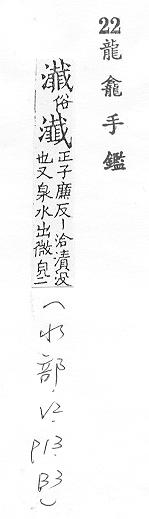 22 龍龕手鑑
瀸俗瀸正子廉反丨洽漬沒也又泉水出微皃二
(水部.V2.P13.B3)